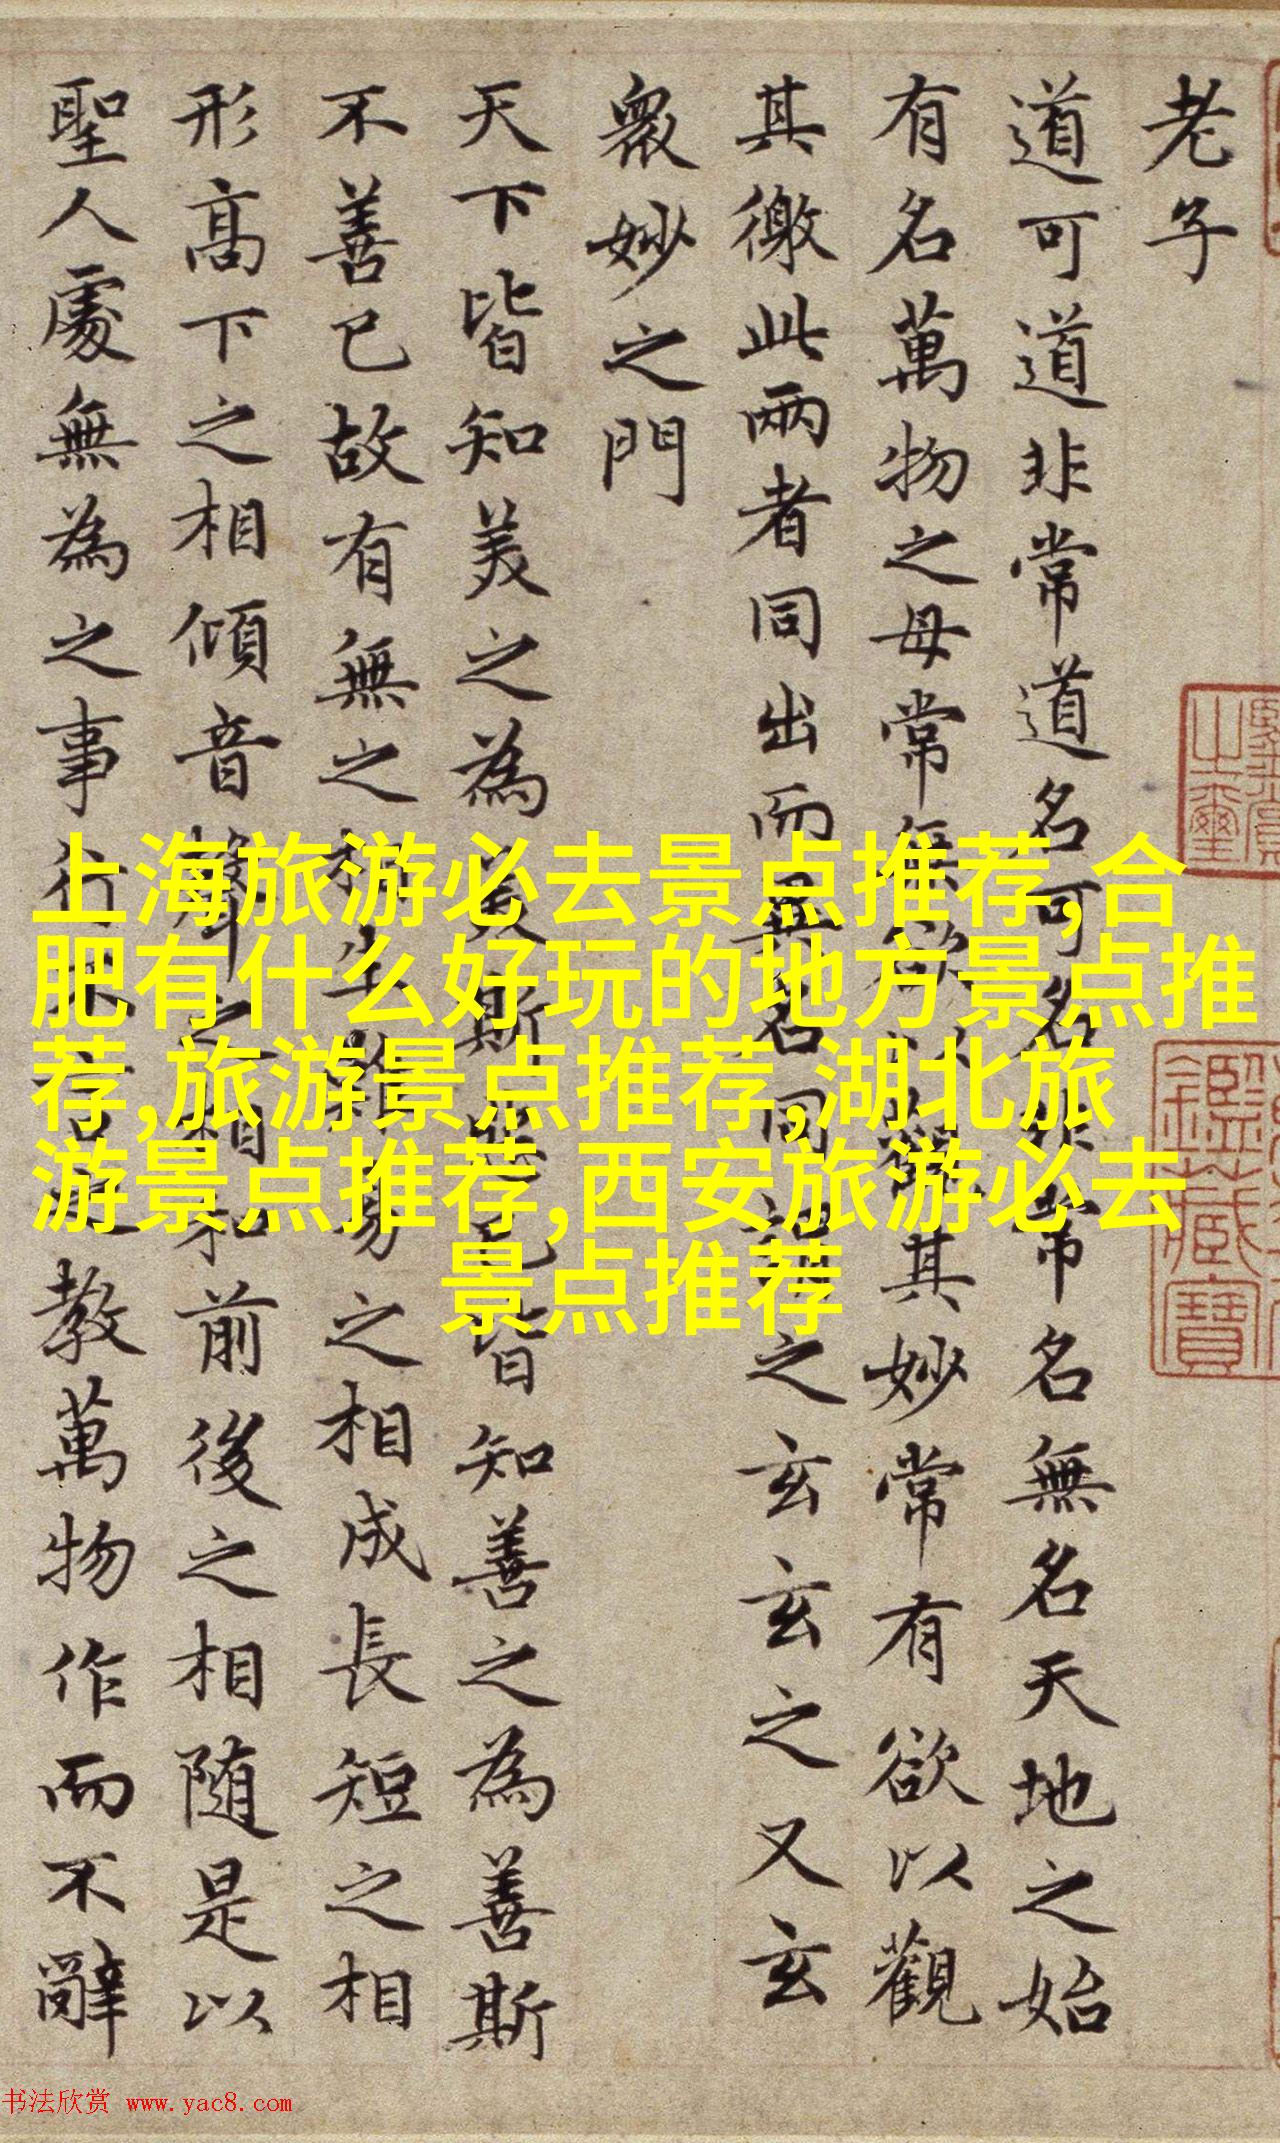 老子
道可道非常道名可名非常名無名天地之始
有名萬物之母常無欲以觀其妙常有欲以觀
其徼此兩者同出而異名同謂之玄玄之又玄
衆妙之門
天下皆知美之為美斯惡已皆知善之為善斯
不善已故有無之相生難易之相成長短之相
形高下之相傾音聲之相和前後之相随是以
聖人處無為之事行不言之教萬物作而不辭
上海旅游必去景点推荐,合
肥有什么好玩的地方景点推
荐,旅游景点推荐,湖北旅
游景点推荐,西安旅游必去
景点推荐
鑑藏寶
书法欣赏 www.yac8.com